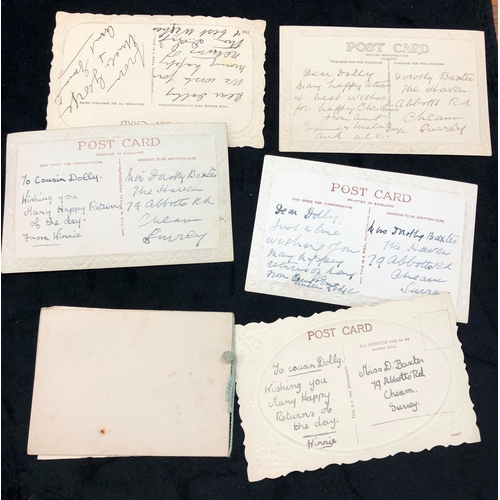 Dear Dolly
We wish you
many happy
returns of
the day
& best wishes
From
Uncle George
POST CARD
POST CARD
Dear Dolly
many happy returns
& best wishes
for happy Christmas
From Aunt
and all
Dorothy Baxter
The Haven
Abbotts Rd
Cheam
Surrey
POST CARD
PRINTED IN ENGLAND
ADDRESS TO BE WRITTEN HERE
To Cousin Dolly.
Wishing you
Many Happy Returns
of the day.
From Winnie
Miss Dorothy Baxter
The Haven
79 Abbotts Rd
Cheam
Surrey
POST CARD
Dear Dolly.
Just a line
wishing you
many happy
returns of day
From
Miss Dorothy Baxter
The Haven
79 Abbotts Rd
Cheam
Surrey
POST CARD
To cousin Dolly.
Wishing you
Many Happy
Returns of
the day.
Winnie
The ADDRESS only to be
written here.
Miss D. Baxter
79 Abbotts Rd
Cheam.
Surrey.